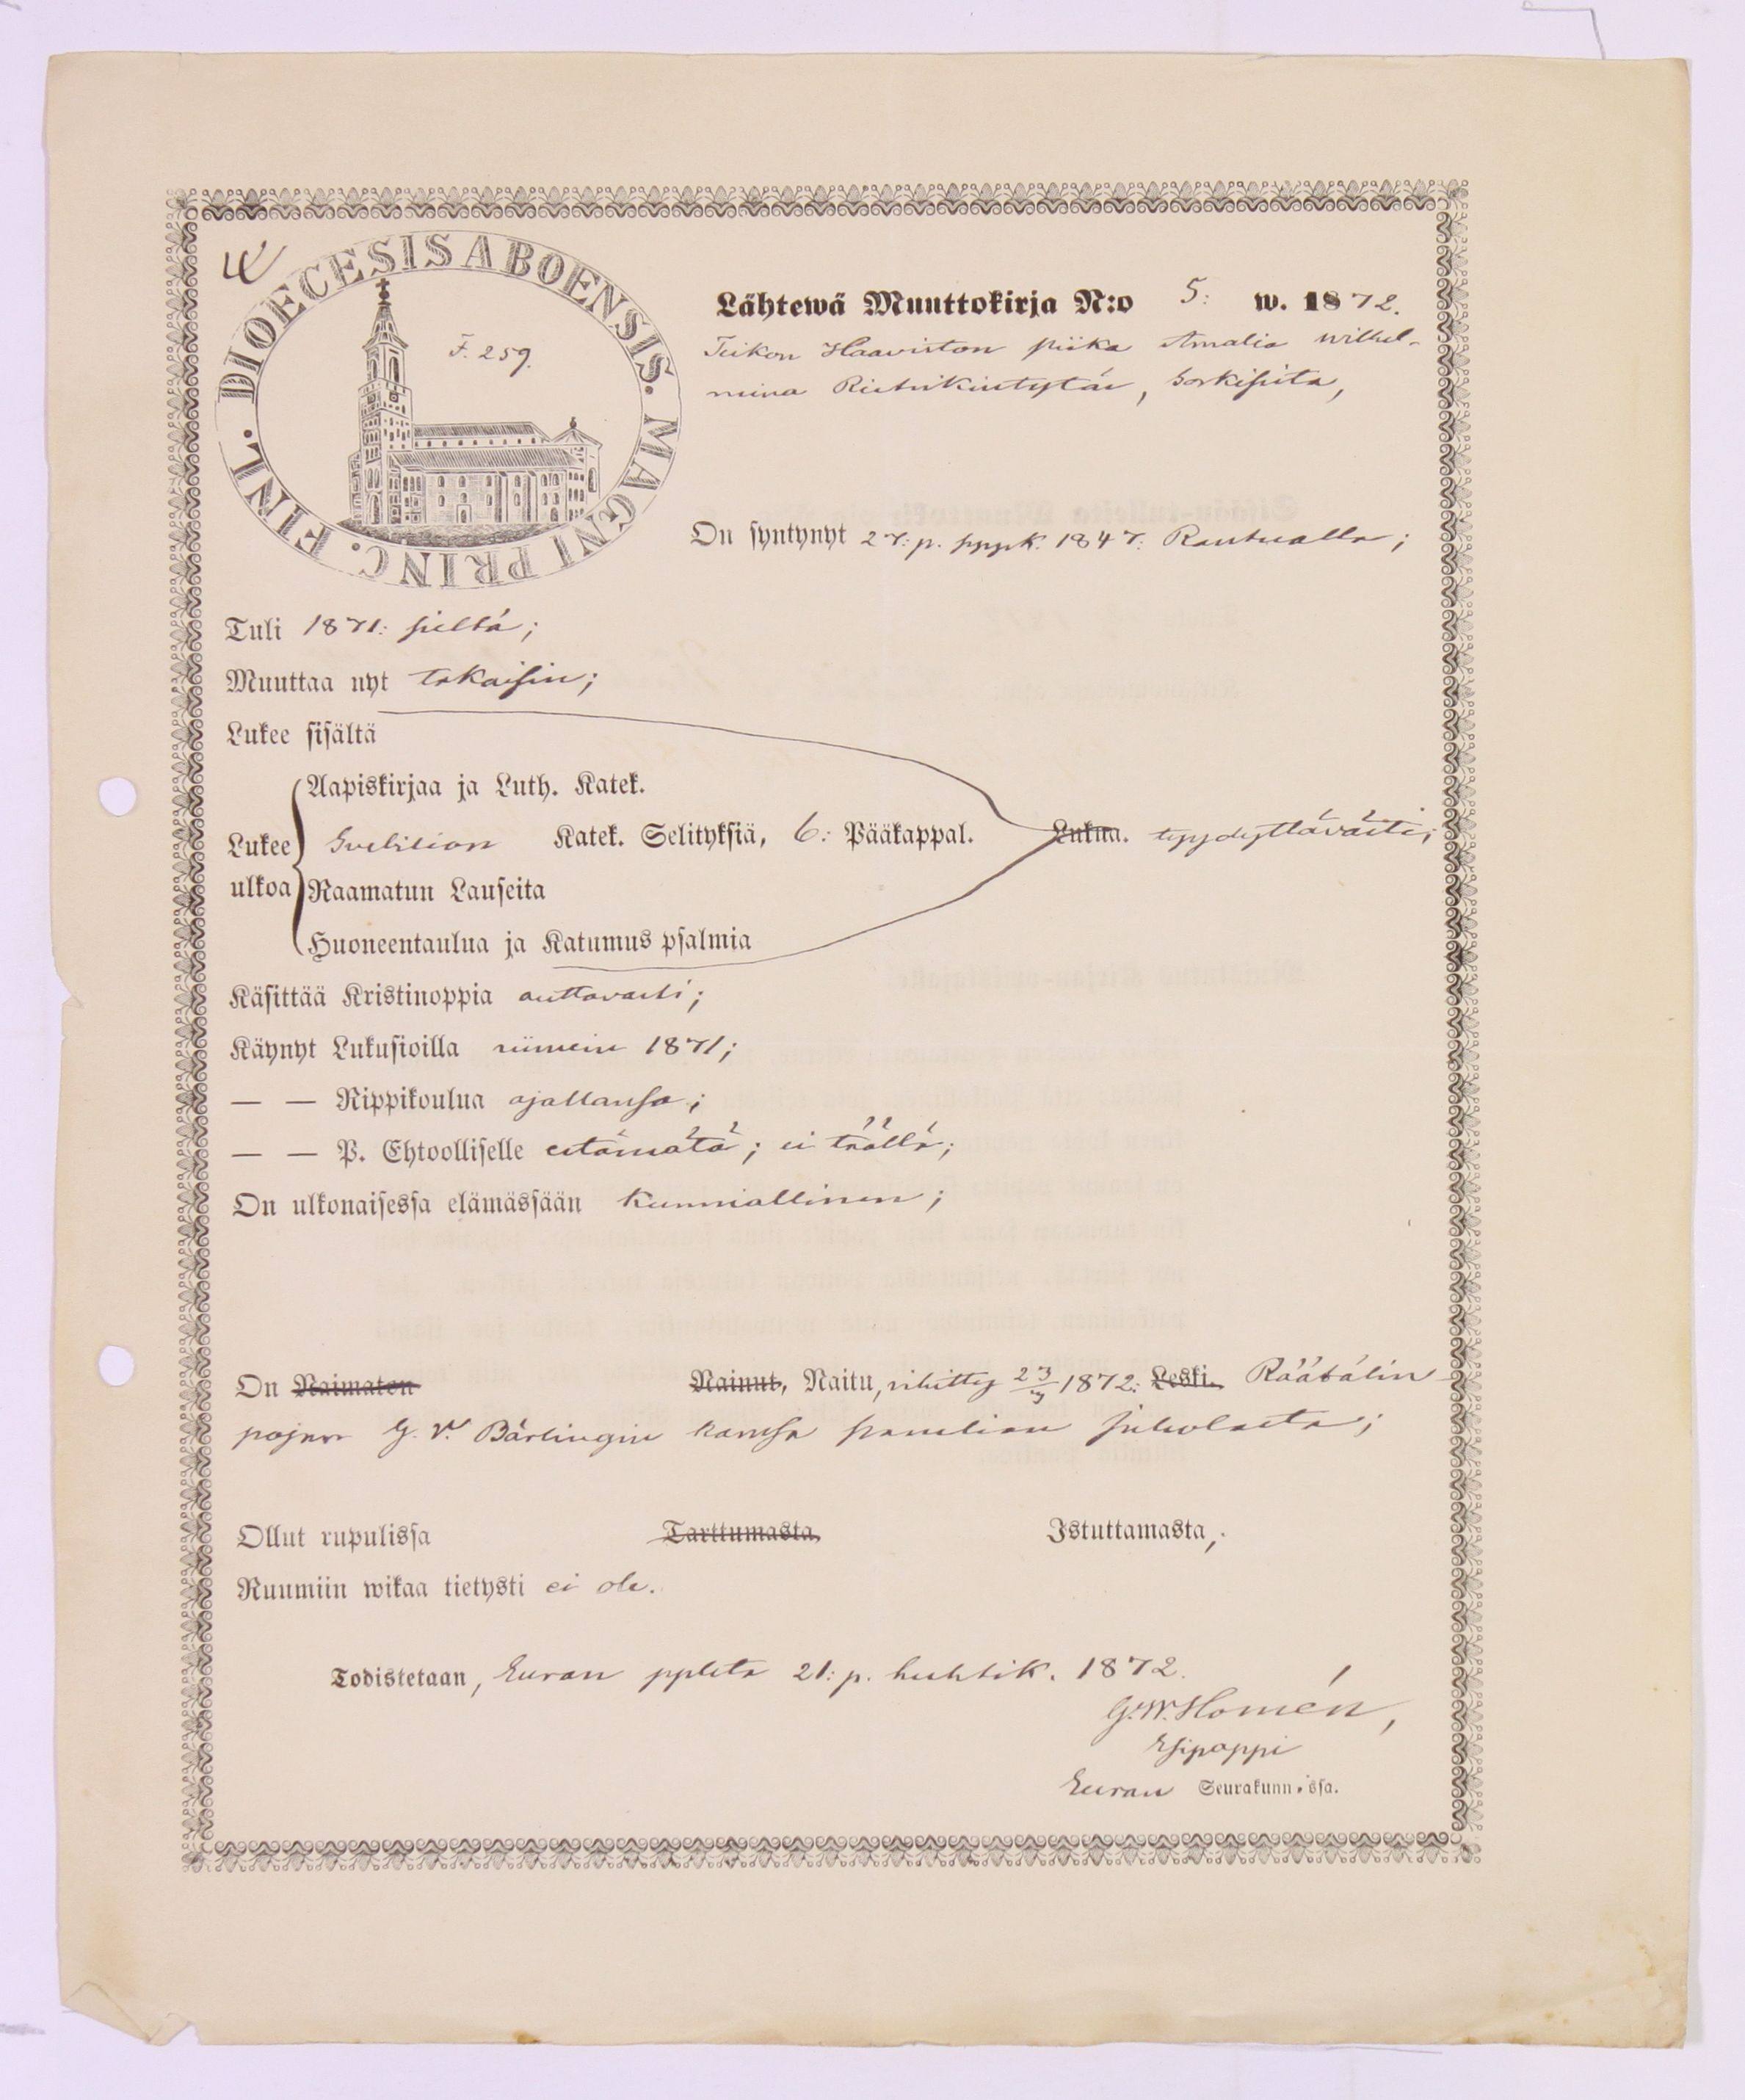 DIOECESIS ABOENSIS. MAGNI PRINC. FINL.
F. 259.
Lähtewä Muuttokirja N:o 5: w. 1872.
Teikon Haaviston piika Amalia Wilhel-
mina
On syntynyt 27: p. syysk. 1847:
Tuli 1871: sieltä;
Muuttaa nyt takaisin;
Lukee sisältä
Aapiskirjaa ja Luth. Katek.
Lukee Svebilion Katek. Selityksiä, 6: Pääkappal. Lukua. tyydyttävästi;
ulkoa Raamatun Lauseita
Huoneentaulua ja Katumus psalmia
Käsittää Kristinoppia auttavasti;
Käynyt Lukusioilla viimein 1871;
— — Rippikoulua ajallansa;
— — P. Ehtoolliselle estämätä; ei täällä;
On ulkonaisessa elämässään kunniallinen;
On Naimaton Nainut, Naitu, vihitty 23/3 1872: Leski. Räätälin
pojan G. V. Bärlingin kanssa
Ollut rupulissa Tarttumasta, Istuttamasta,
Ruumiin wikaa tietysti ei ole.
Todistetaan, Euran pplsta 21: p. huhtik. 1872.
G. W. Homén,
Esipappi
Euran Seurakunn.ssa.